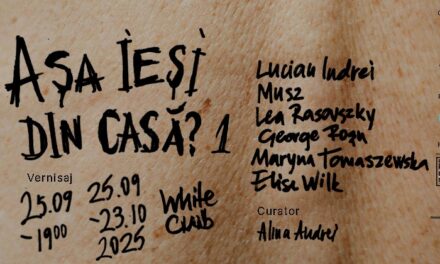 AȘA IEȘI
DIN CASĂ? 1
Vernisaj
25.09
-19:00
25.09
-23.10
2025
White
Cuib
Lucian Indrei
Musz
Lea Rasovszky
George Roșu
Maryna Tomaszewska
Elise Wilk
Curator
Alina Andrei